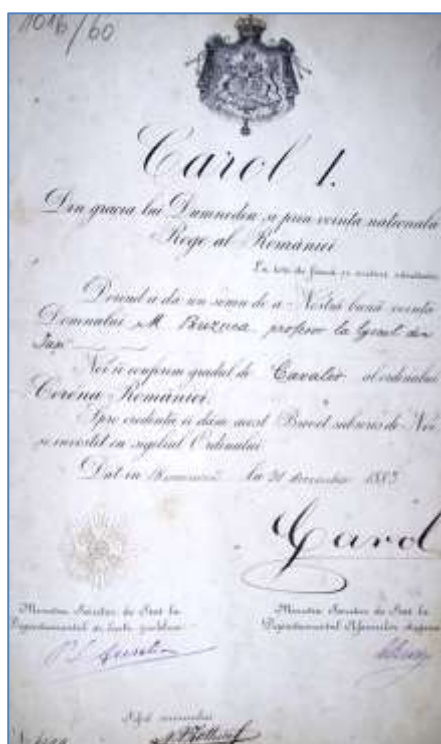 1016/60
Carol I.
Din gracia lui Dumnedeu si prin vointa nationala
Rege al României
La toti de fatia si viitori sanatate
Voind a da un semn de a Nóstră bună vointa
Domnului M Buznea profesor la din
Iași
Noi ii conferim gradul de Cavaler al ordinului
Coróna României.
Spre credentia ii dam acest Brevet subscris de Noi
si investit cu sigiliul Ordinului.
Dat in la 1883
Carol
Ministru Secretar de Stat la
Departamentul
Ministru Secretar de Stat la
Departamentul Afacerilor